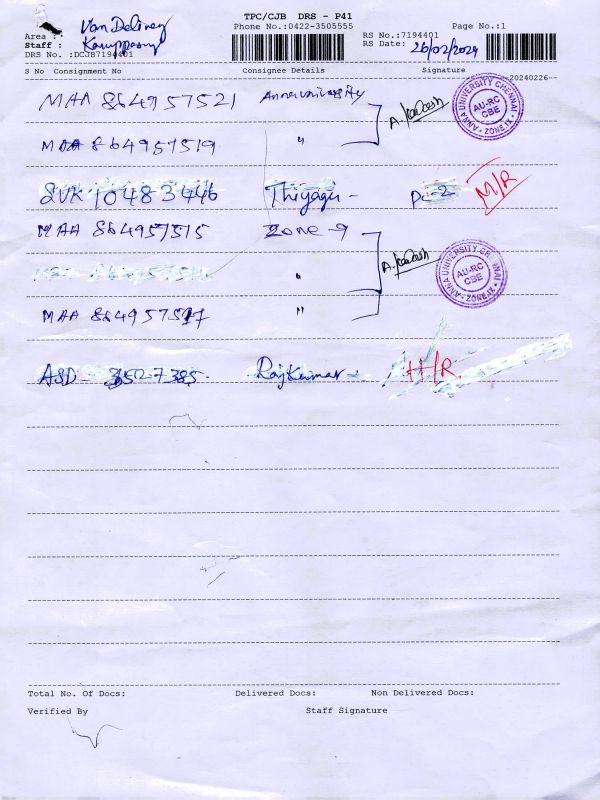 TPC/CJB DRS - P41
Area : Van Delivery
Phone No.:0422-3505555
Page No.:1
Staff :
RS No.:7194401
DRS No. :DCJB7194401
RS Date: 26/02/2024
S No Consignment No Consignee Details Signature
20240226
MAA 864957521 Anna university
ANNA UNIVERSITY CHENNAI
AU-RC
CBE
ZONE.IX
MAA 864957519 "
SVK 10483446 Thiyagu - M/R
MAA 864957515 Zone - 9
ANNA UNIVERSITY
AU-RC
CBE
ZONE.IX
"
MAA "
ASD - Rajkumar - H/R
Total No. Of Docs: Delivered Docs: Non Delivered Docs:
Verified By Staff Signature